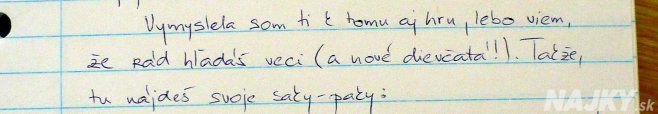 Vymyslela som ti k tomu aj hru, lebo viem,
že rád hľadáš veci (a nové dievčatá!!). Takže,
tu nájdeš svoje saky-paky:
NAJKY.sk